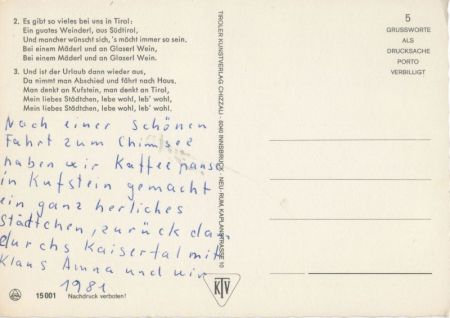 2. Es gibt so vieles bei uns in Tirol:
Ein guates Weinderl, aus Südtirol,
Und mancher wünscht sich, 's möcht immer so sein.
Bei einem Mäderl und an Glaserl Wein,
Bei einem Mäderl und an Glaserl Wein.
3. Und ist der Urlaub dann wieder aus,
Da nimmt man Abschied und fährt nach Haus.
Man denkt an Kufstein, man denkt an Tirol,
Mein liebes Städtchen, lebe wohl, leb' wohl,
Mein liebes Städtchen, lebe wohl, leb' wohl.
Nach einer schönen
Fahrt zum Chimsee
haben wir Kaffeepause
in Kufstein gemacht
ein ganz herliches
Städtchen, zurück dan
durchs Kaisertal mit
Klaus Anna und wir
1981
15001 Nachdruck verboten!
TIROLER KUNSTVERLAG CHIZZALI · 6040 INNSBRUCK - NEU - RUM, KAPLANSTRASSE 10
KTV
5
GRUSSWORTE
ALS
DRUCKSACHE
PORTO
VERBILLIGT